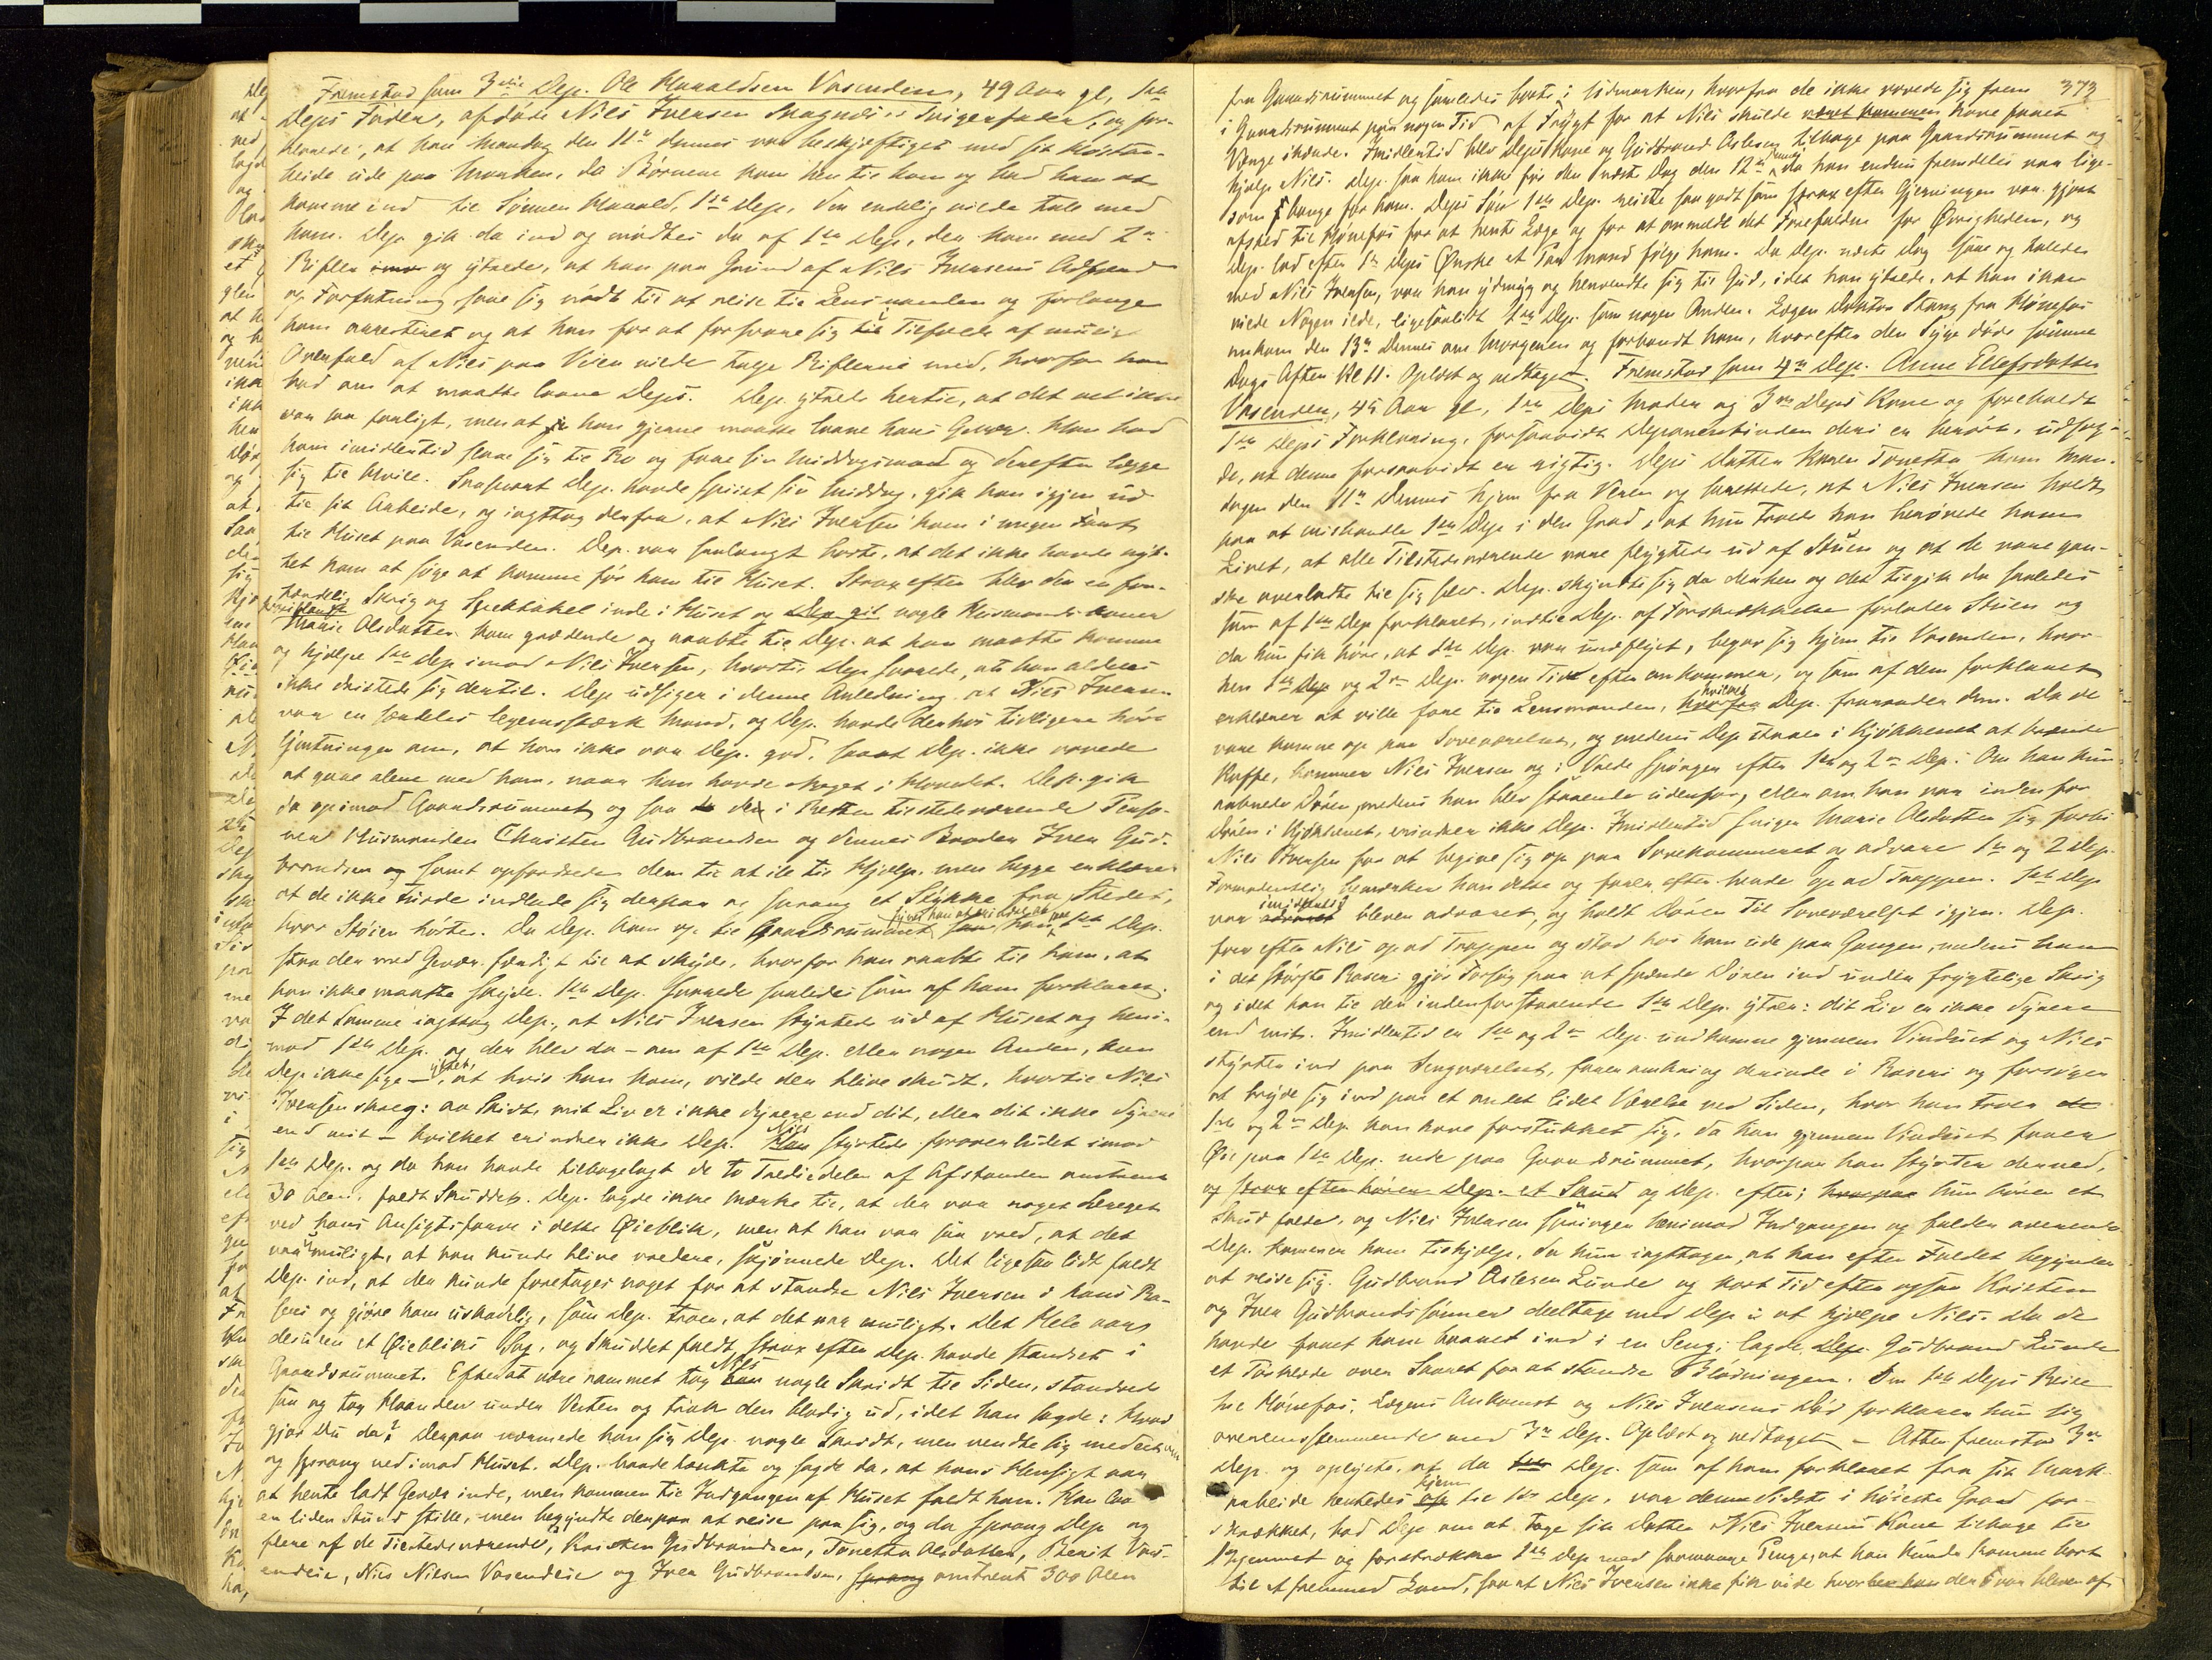 Fremstod som 3die Dep. Ole Haraldsen Vasenden, 49 Aar gl, 1ste
Deps Fader, afdøde Nils Iversen Svigerfader, og for-
klarede, at han Mandag den 11te dennes var beskjæftiget med sit
beide ude paa Marken, da Børnene kom hen til ham og bad ham at
komme ind til Sønnen Harald, 1ste Dep, der endelig vilde tale med
ham. Dep gik da ind og mødtes da af 1ste Dep, der kom med 2
Rifler og yttrede, at han paa Grund af Nils Iversens Adfærd
og Forfatning saae sig nødt til at reise til Lensmanden og forlange
ham arresteret og at han for at forsvare sig i Tilfælde af muligt
Overfald af Nils paa Veien vilde tage Riflerne med, hvorfor han
bad om at maatte laane Deps. Dep. yttrede hertil, at det vel ikke
var saa farligt, men at han gjerne maatte laane hans Gevær. Han bad
ham imidlertid slaae sig til Ro og faae sin Middagsmad og derefter lægge
sig til Hvile. Saasnart Dep. havde spiist sin Middag, gik han igjen ud
til sit Arbeide, og iagttog derfra, at Nils Iversen kom i megen Fart
til Huset paa Vasenden. Dep. var saalangt borte, at det ikke havde nyt-
tet ham at søge at komme før ham til Huset. Strax efter blev der en for-
færdelig Skrig og Spektakel inde i Huset og Dep gik nogle
Marie Olsdatter kom grædende og raabte til Dep. at han maatte komme
og hjælpe 1ste Dep imod Nils Iversen, hvortil Dep svarede, at han aldeles
ikke dristede sig dertil. Dep udsiger i denne Anledning at Nils Iversen
var en særdeles legemsstærk Mand, og Dep. havde derhos tidligere hørt
Ytringer om, at han ikke var Dep. god, saa at Dep. ikke vovede
at være alene med ham, naar han havde Noget i Hovedet. Dep. gik
da opimod Gaardsrummet og saa de i Retten tilstedeværende Perso-
ner Husmanden Christen Gudbrandsen og dennes Broder Iver Gud-
brandsen og samt opfordrede dem til at ile til Hjælp, men begge erklærede
at de ikke turde indlade sig derpaa og sprang et Stykke fra Stedet,
hvor Støien hørtes. Da Dep. kom op til Gaardsrummet saa han 1ste Dep.
staa der med Gevær færdigt til at skyde, hvorfor han raabte til ham, at
han ikke maatte skyde. 1ste Dep. svarede saaledes som af ham forklaret.
I det samme iagttog Dep, at Nils Iversen styrtede ud af Huset og heni-
mod 1ste Dep. og der blev da – om af 1ste Dep. eller nogen Anden, kan
Dep ikke sige – yttret, at hvis han kom, vilde der blive skudt, hvortil Nils
Iversen skreg: aa Skidt, mit Liv er ikke dyrere end dit, eller dit ikke dyrere
end mit – hvilket erindrer ikke Dep. Nils styrtede foroverludet imod
1ste Dep. og da han havde tilbagelagt de to Trediedele af Afstanden omtrent
30 Alen, faldt Skuddet. Dep. lagde ikke Mærke til, at der var noget
ved hans Ansigtsfarve i dette Øieblik, men at han var saa vred, at det
var umuligt, at han kunde blive vredere, skjønnede Dep. Det ligesaa lidt faldt
Dep. ind, at der kunde foretages noget for at standse Nils Iversen i hans Ra-
seri og gjøre ham uskadelig, som Dep. troer, at det var muligt. Det Hele var
desuden et Øiebliks Sag, og Skuddet faldt strax efter Dep. havde standset i
Gaardsrummet. Efterat være rammet tog Nils nogle Skridt til Siden, standsede
saa og tog Haanden under Vesten og trak den blodig ud, idet han sagde: Hvad
gjør Du da? Derpaa nærmede han sig Dep. nogle Skridt, men vendte sig med eet om
og sprang ned imod Huset. Dep. baade tænkte og sagde da, at hans Hensigt var
at hente ladt Gevær inde, men kommen til Indgangen af Huset faldt han. Han laa
en liden Stund stille, men begyndte derpaa at reise paa sig, og da sprang Dep og
flere af de Tilstedeværende, Kristen Gudbrandsen, Tonetta Olsdatter, Berit Vas-
endeie, Nils Nilsen Vasendeie og Iver Gudbrandsen, sprang omtrent 300 Alen
373
fra Gaardsrummet og saaledes borte i Udmarken, hvorfra de ikke vovede sig frem
i Gaardsrummet paa nogen Tid af Frygt for at Nils skulde været kommen have faaet
Vaage ihænde. Imidlertid blev Deps Kone og Gudbrand Aslesen tilbage paa Gaardsrummet og
hjalp Nils. Dep. saa ham ikke før den næste Dag den 12te da han endnu fremdeles var lige-
som bange for ham. Deps Søn 1ste Dep. reiste saa godt som strax efter Gjerningen var gjort
afsted til Hønefos for at hente Læge og for at anmelde det Forefaldne for Øvrigheden, og
Dep. lod efter 1ste Deps Ønske et Par Mand følge ham. Da Dep. næste Dag saae og talede
med Nils Iversen, var han ydmyg og henvendte sig til Gud, idet han yttrede, at han ikke
vilde Nogen ilde, ligesaalidt 1ste Dep. som nogen Anden. Lægen Doktor Stang fra Hønefos
ankom den 13de Dennes om Morgenen og forbandt ham, hvorefter den Syge døde samme
Dags Aften Kl 11. Oplæst og vedtaget. Fremstod som 4de Dep. Anne Ellefsdatter
Vasenden, 45 Aar gl, 1ste Deps Moder og 3die Deps Kone og foreholdt
1ste Deps Forklaring, forsaavidt Deponentinden deri er berørt, udsag-
de, at denne forsaavidt er rigtig. Deps Datter Karen Tonetta kom Man-
dagen den 11te Dennes hjem fra Veien og berettede, at Nils Iversen holdt
paa at mishandle 1ste Dep i den Grad, at hun troede han berøvede ham
Livet, at alle Tilstedeværende vare flygtede ud af Stuen og at de vare gan-
ske overladte til sig selv. Dep. skyndte sig da derhen og det tilgik da saaledes
som af 1ste Dep forklaret, indtil Dep. af Forskrækkelse forlader Stuen og
da hun fik høre, at 1ste Dep. var undflyet, begav sig hjem til Vasenden, hvor-
hen 1ste Dep og 2den Dep. nogen Tid efter ankommer, og som af dem forklaret
erklærer at ville fare til Lensmanden, hvilket Dep. fraraader dem. Da de
vare komne op paa Soveværelset, og medens Dep staaer i Kjøkkenet at brænde
Kaffe, kommer Nils Iversen og i Vrede spørger efter 1ste og 2den Dep. Om han kun
aabnede Døren, medens han blev staaende udenfor, eller om han var indenfor
Døren i Kjøkkenet, erindrer ikke Dep. Imidlertid sniger Marie Olsdatter sig forbi
Nils Iversen for at begive sig op paa Sovekammeret og advare 1ste og 2den Dep.
Formodentlig bemærker han dette og farer efter hende op ad Trappen. 1ste Dep
var imidlertid bleven advaret, og holdt Døren til Soveværelset igjen. Dep.
foer efter Nils op ad Trappen og stod hos ham ude paa Gangen, medens han
i det største Raseri gjør Forsøg paa at sprænde Døren ind under frygtelige Skrig
og idet han til den indenforstaaende 1ste Dep. yttrer: dit Liv er ikke dyrere
end mit. Imidlertid er 1ste og 2den Dep. undkomne gjennem Vinduet og Nils
styrter ind paa Sengværelset, farer omkring derinde i Raseri og forsøger
at bryde sig ind paa et andet lidet Værelse ved Siden, hvor han troer
1ste og 2den Dep. kan have forstukket sig, da han gjennem Vinduet faaer
Øie paa 1ste Dep. nede paa Gaardsrummet, hvorpaa han styrter derned,
og strax efter hører Dep. et Skud og Dep. efter; hvorpaa hun hører et
Skud falde, og Nils Iversen springer henimod Indgangen og falder overende.
Dep. kommer ham tilhjælp, da hun iagttager, at han efter Faldet begynder
at reise sig. Gudbrand Aslesen Lunde og kort Tid efter ogsaa Kristen
og Iver Gudbrandssønner deeltage med Dep i at hjælpe Nils. Da de
havde faaet ham baaret ind i en Seng, lagde Dep. Gudbrand Lunde
et Tørklæde over Saaret for at standse Blødningen. Om 1ste Deps Reise
til Hønefos, Lægens Ankomst og Nils Iversens Død forklarer hun sig
overensstemmende med 3die Dep. Oplæst og vedtaget. – Atter fremstod 3die
Dep. og oplyste, at da Dep. som af ham forklaret fra sit Mark-
arbeide hentedes hjem til 1ste Dep, var denne Sidste i høieste Grad for-
skrækket, bad Dep om at tage sin Datter Nils Iversens Kone tilbage til
Hjemmet og forstrække 1ste Dep med saamange Penge, at han kunde komme bort
til et fremmed Land, saa at Nils Iversen ikke fik vide hvor han var bleven af